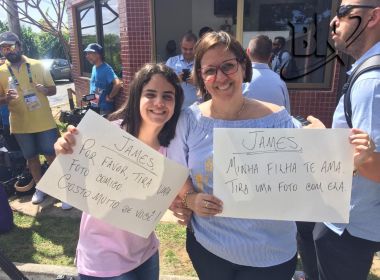 JAMES,
POR FAVOR, TIRA UMA
FOTO COMIGO.
GOSTO MUITO DE VOCÊ!
JAMES,
MINHA FILHA TE AMA.
TIRA UMA FOTO COM ELA.